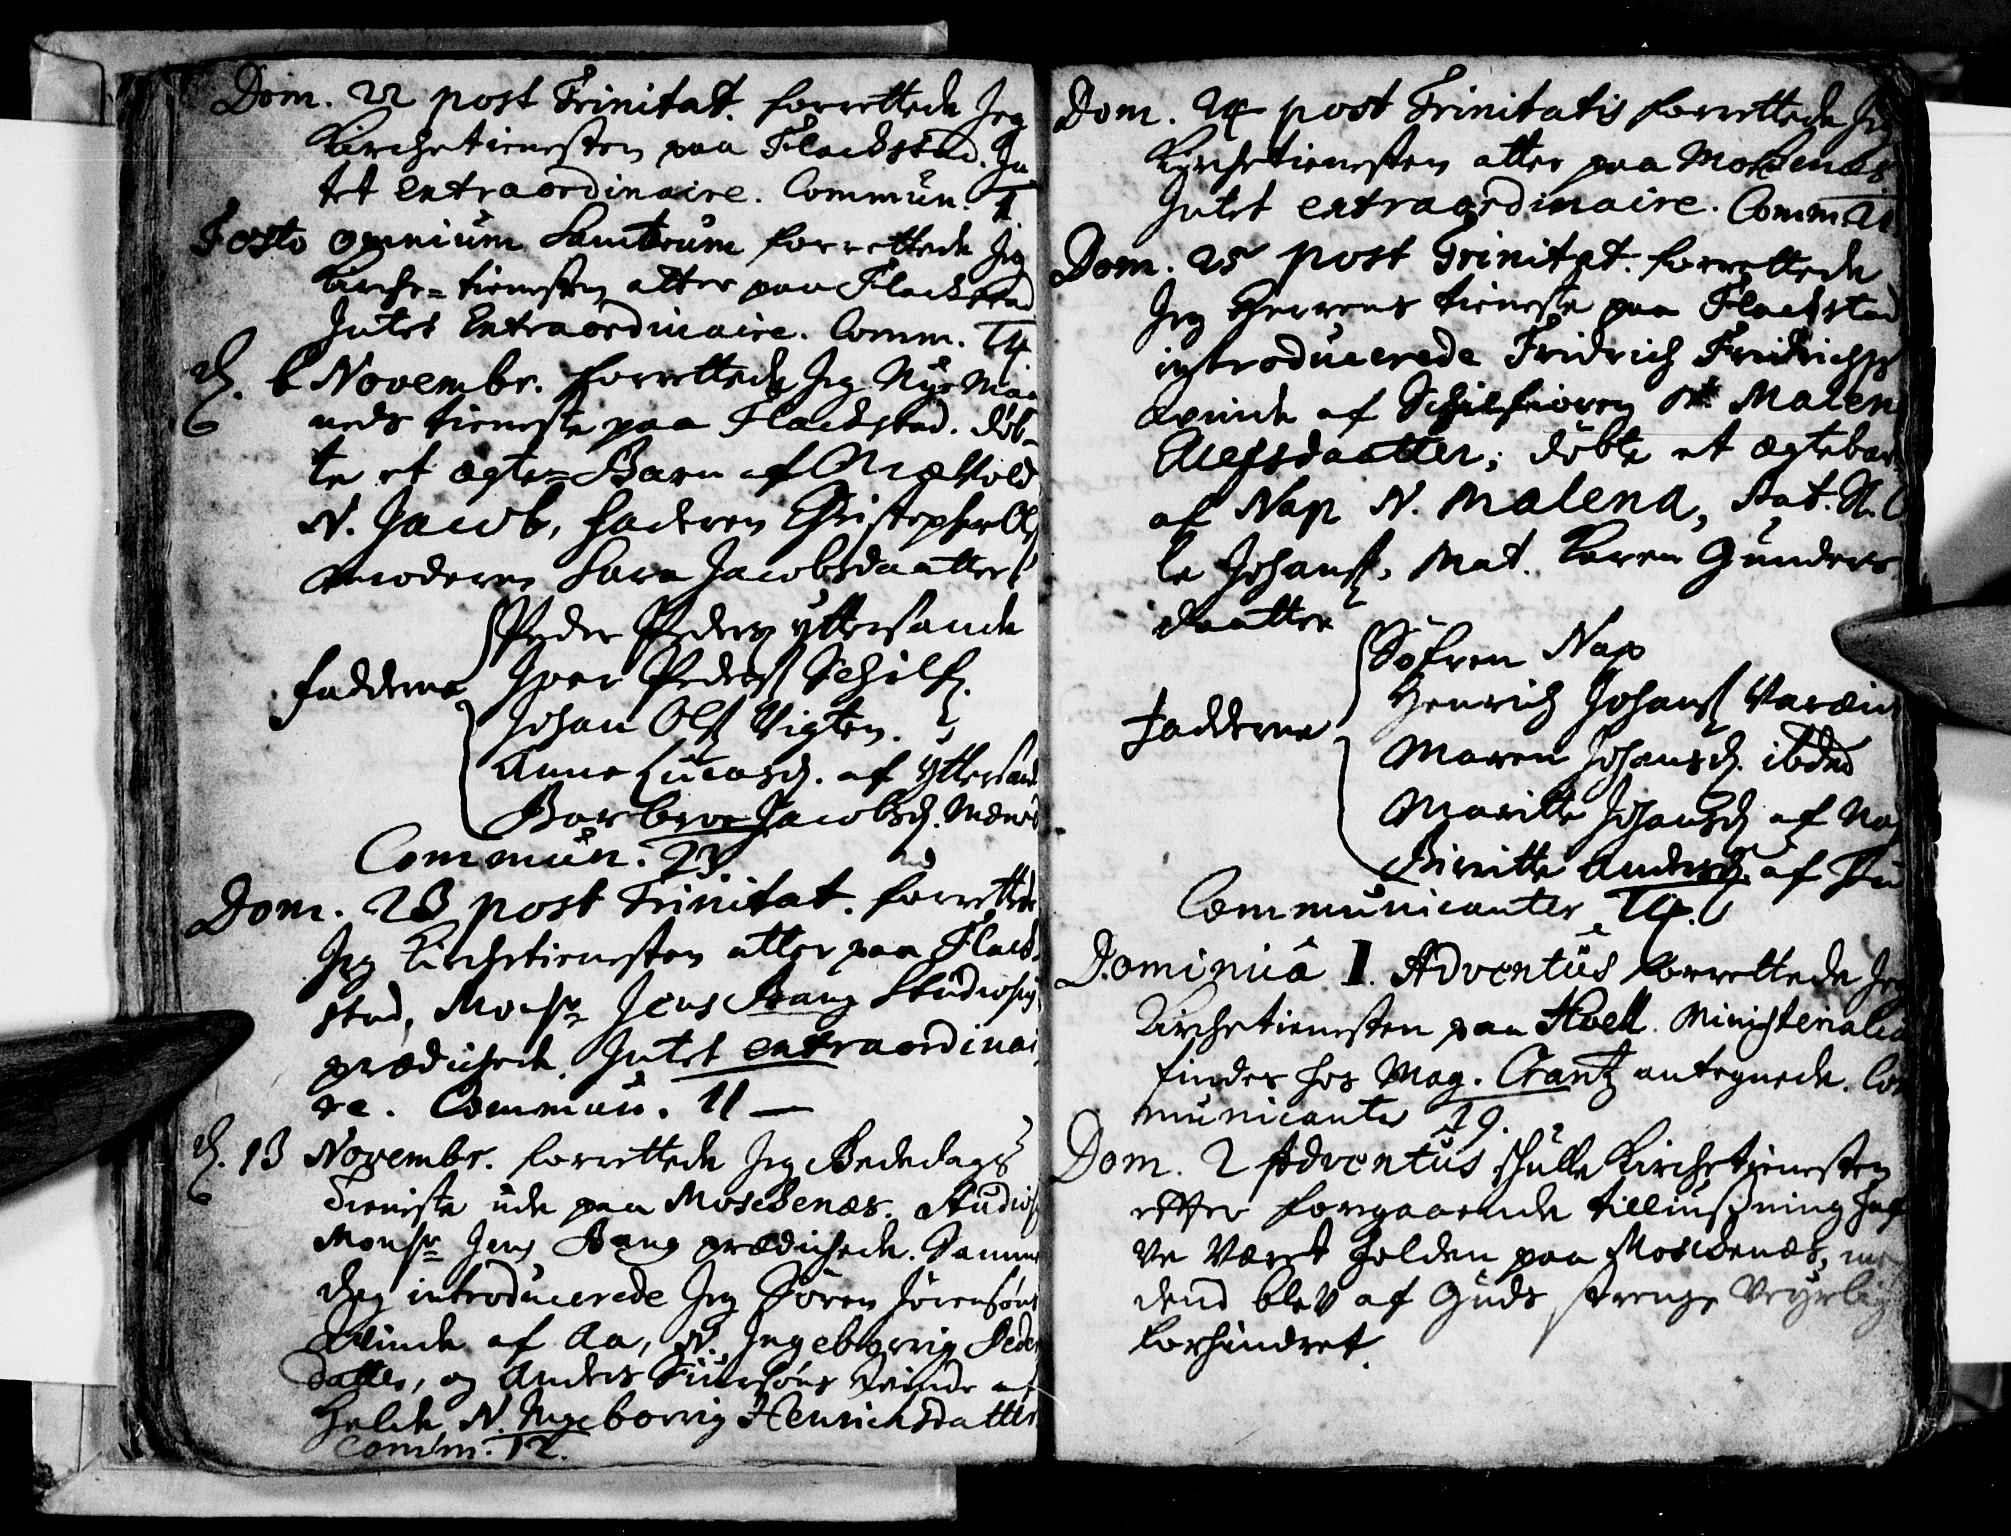 Dom. 22 post Trinitat. forrettede Jeg
Kirchetienesten paa Flackstad. In-
tet extraordinaire. Commun. 1
Festo omnium Sanctorum forrettede Jeg
Kirche-tienesten atter paa Flackstad
Intet Extraordinaire. Comm. 14
d. 6 Novembr. forrettede Jeg Nye Maa-
neds tieneste paa Flackstad. døb-
te et ægte-Barn af
N. Jacob, faderen Christopher
moderen Sara Jacobsdaatter
Peder Peders yttersande
Faddere Iver Peders Schilf.
Johan Ols Vigten.
Anne Lucasd. af Yttersand
Barbroe Jacobsd.
Commun. 23
Dom. 23 post Trinitat. forrettede
Jeg Kirchetienesten atter paa Flack-
stad, Monsr Jens Bang Studiosus
prædichede. Intet extraordinai-
re. Commun. 11 —
d. 13 Novembr. forrettede Jeg Bededags
Tieneste ude paa Moschenæs. Studios
Monsr Jens Bang prædichede. Samme
dag introducerede Jeg Sören Jörensöns
Qvinde af Aa, N. Ingeborrig Peders
datter, og Anders Siursöns Qvinde af
Helde N. Ingeborrig Henrichsdatter
Comm. 12.
Dom. 24 post Trinitatis forrettede Jeg
Kirchetienesten atter paa Moschenæs
Intet extraordinaire. Comm. 21
Dom. 25 post Trinitat. forrettede
Jeg Herrens tieneste paa Flackstad
introducerede Fridrich Fridrichss
Qvinde af Schielfioren N. Malen
Ellefsdaatter; døbte et ægtebarn
af Nap N. Malena, Pat. N.
le Johans, Mat. Karen Gunders
daatter
Söfren Nap
Henrich Johans
Faddere
Maren Johansd. ibdm
Maritte Johansd af Nap
Biritte Andersd af
Communicanter 14.
Dominica I. Adventus forrettede Jeg
Kirchetienesten paa Hoell. Ministerialia
findes hos Mag. Crantz antegnede. Com
municanter 19.
Dom. 2 Adventus skulle Kirchetienesten
efter foregaaende tilliusning haf
ve været holden paa Moschenæs, me
dend blev af Guds strenge Veyrlig
forhindret.